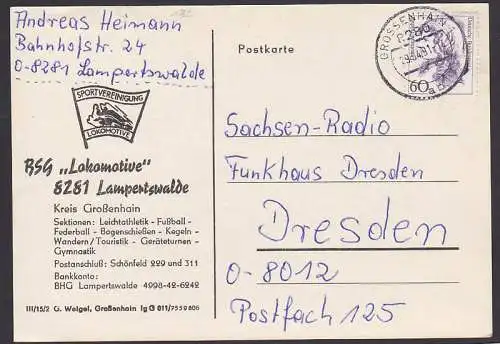 Andreas Heimann
Bahnhofstr. 24
O-8281 Lampertswalde
SPORTVEREINIGUNG
LOKOMOTIVE
BSG „Lokomotive"
8281 Lampertswalde
Kreis Großenhain
Sektionen: Leichtathletik - Fußball -
Federball - Bogenschießen - Kegeln -
Wandern/Touristik - Geräteturnen -
Gymnastik
Postanschluß: Schönfeld 229 und 311
Bankkonto:
BHG Lampertswalde 4998-42-6242
III/15/2 G. Weigel, Großenhain Ig G 811/7559606
Postkarte
GROSSENHAIN
8280
60
Sachsen-Radio
Funkhaus Dresden
Dresden
O-8012
Postfach 125